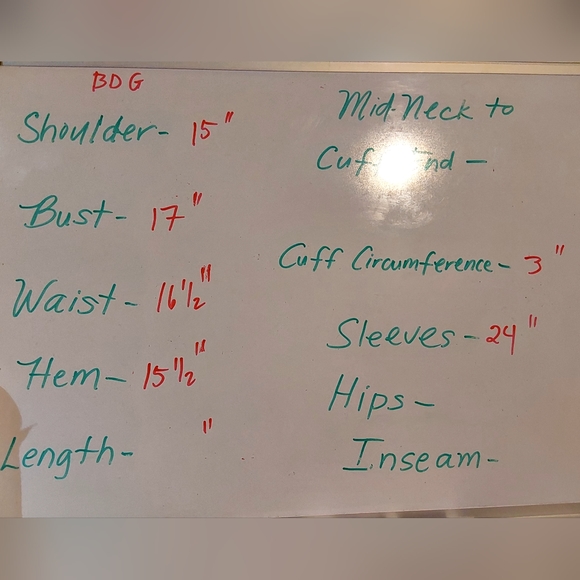 BDG
Shoulder- 15"
Bust- 17"
Waist- 16 1/2"
Hem- 15 1/2"
Length- "
Mid-Neck to
Cuff End -
Cuff Circumference- 3"
Sleeves- 24"
Hips-
Inseam-